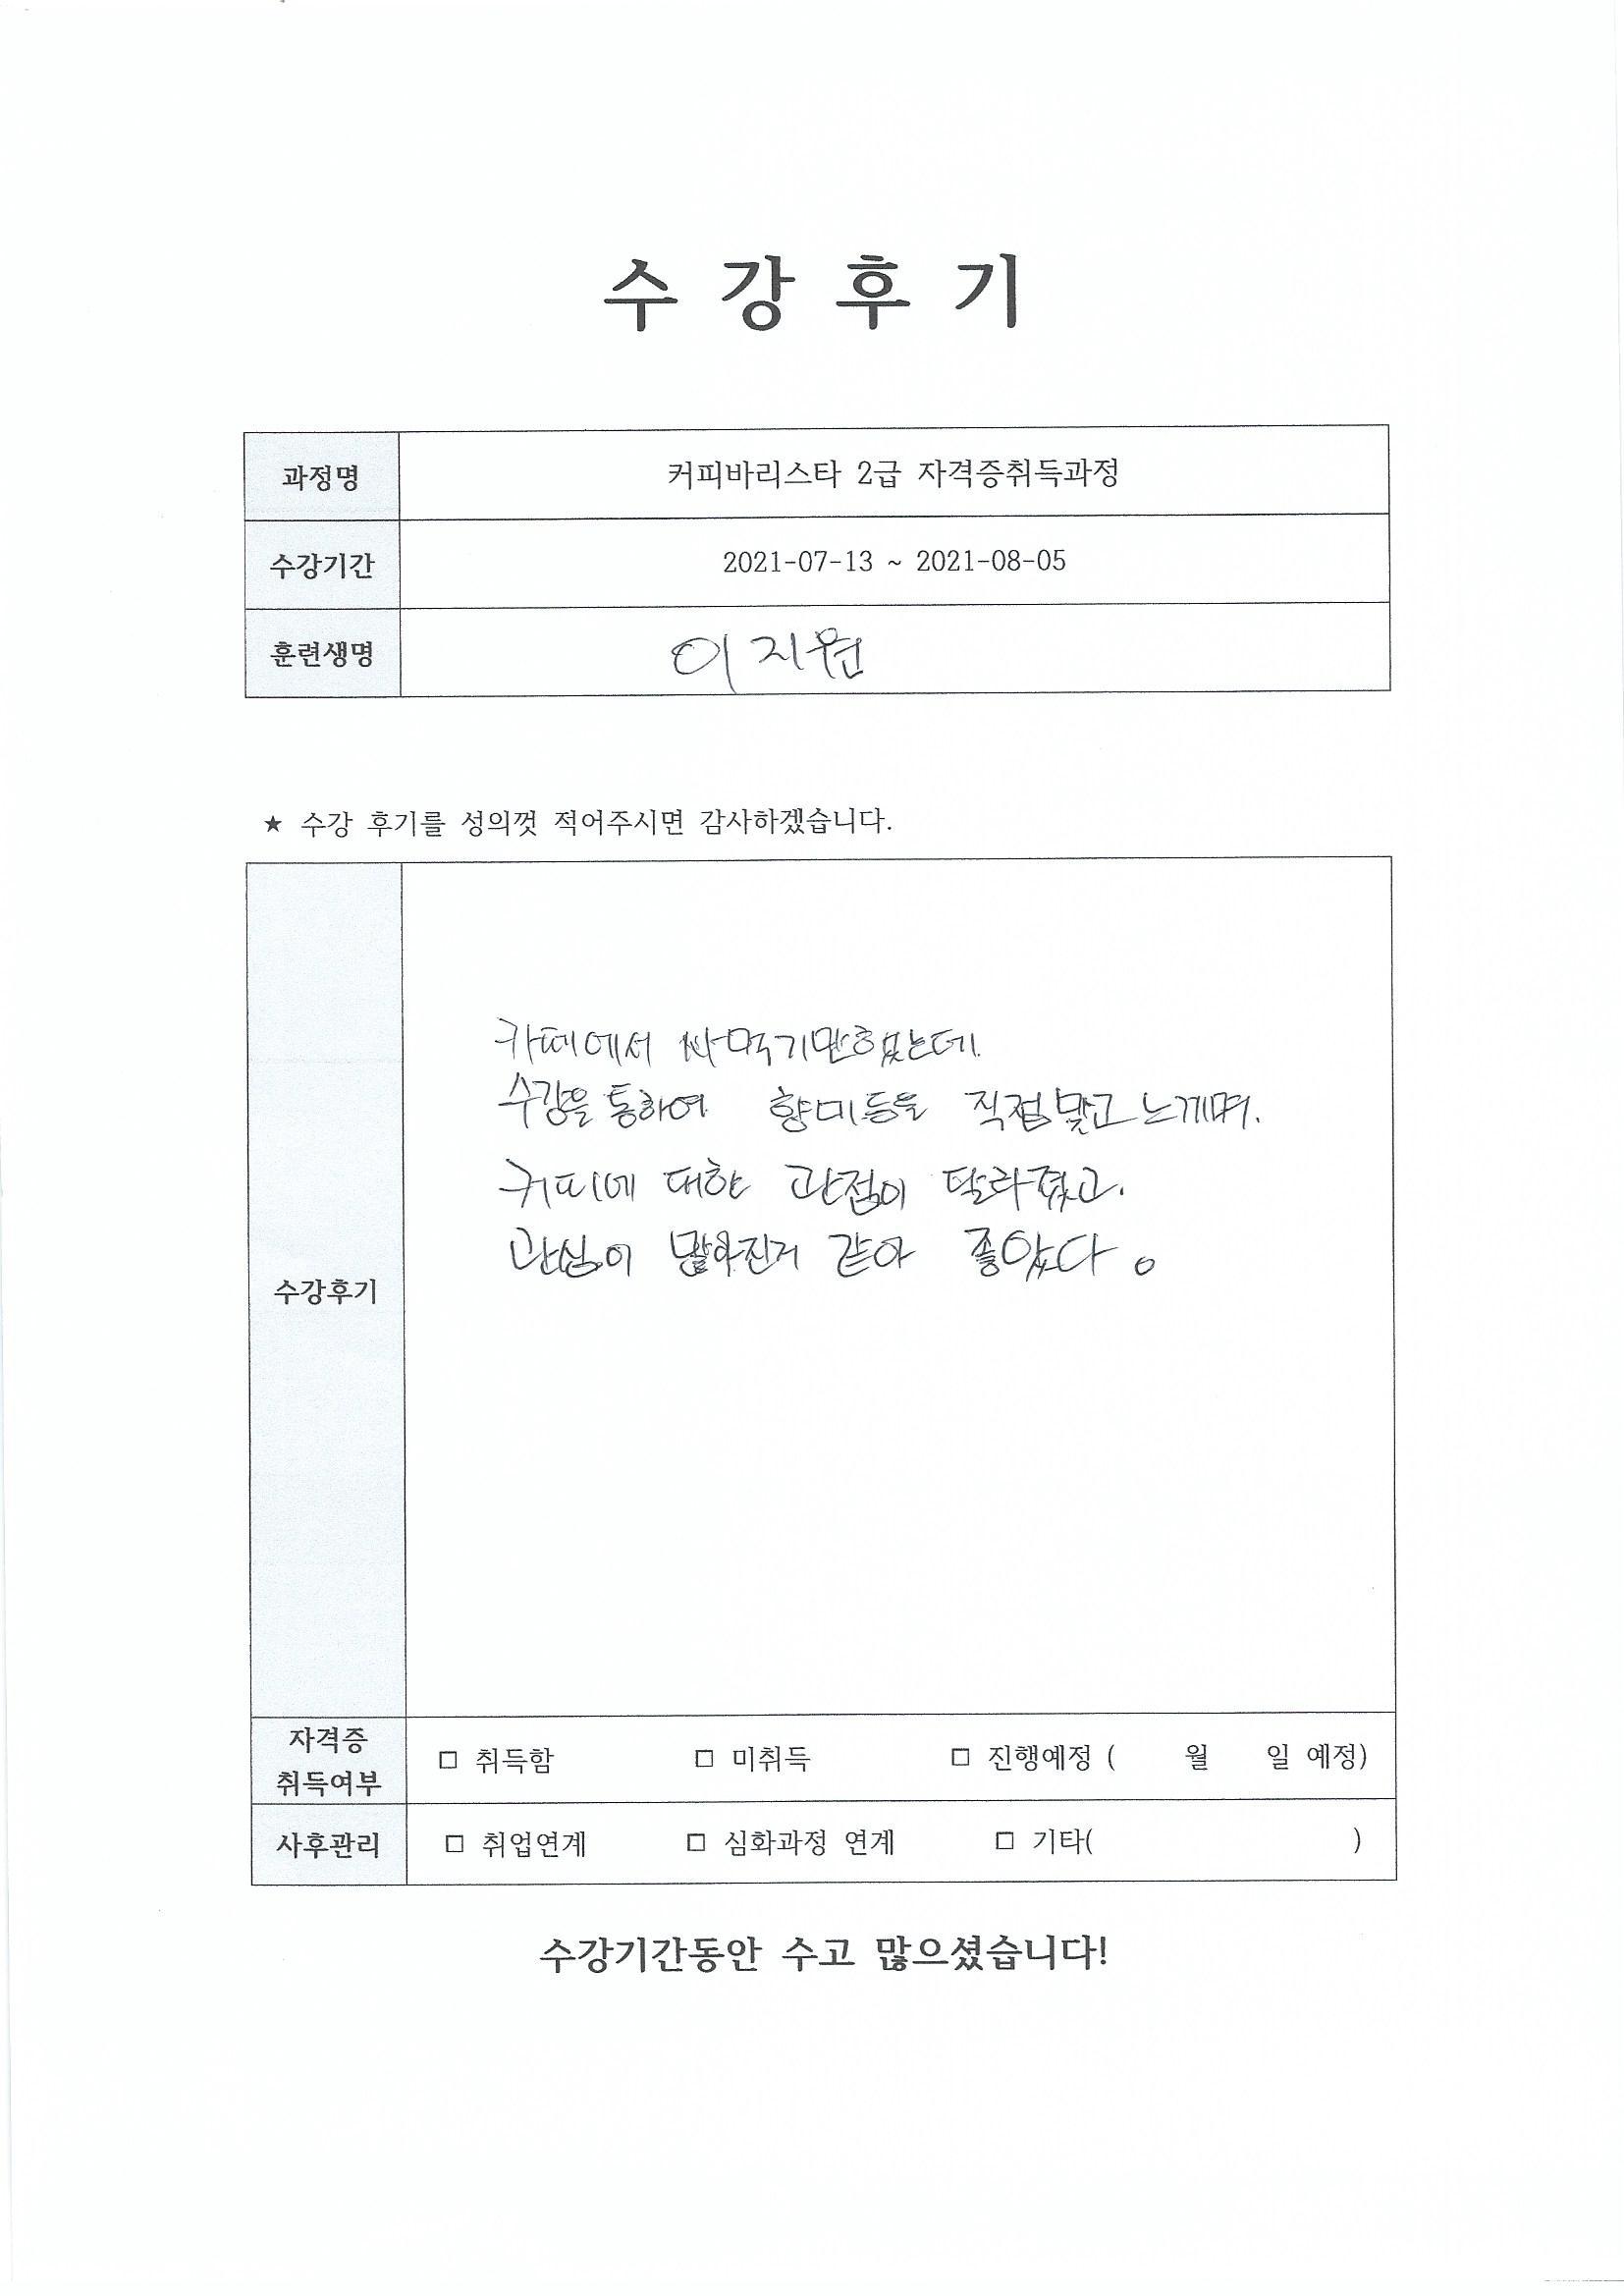 수 강 후 기
과정명 커피바리스타 2급 자격증취득과정
수강기간 2021-07-13 ~ 2021-08-05
훈련생명 이지원
★ 수강 후기를 성의껏 적어주시면 감사하겠습니다.
카페에서 싸먹기만했는데.
수강을 통하여 향미등을 직접맡고 느끼며.
커피에 대한 관점이 달라졌고.
관심이 많아진거 같아 좋았다.
수강후기
자격증 취득여부 □ 취득함 □ 미취득 □ 진행예정 ( 월 일 예정)
사후관리 □ 취업연계 □ 심화과정 연계 □ 기타( )
수강기간동안 수고 많으셨습니다!